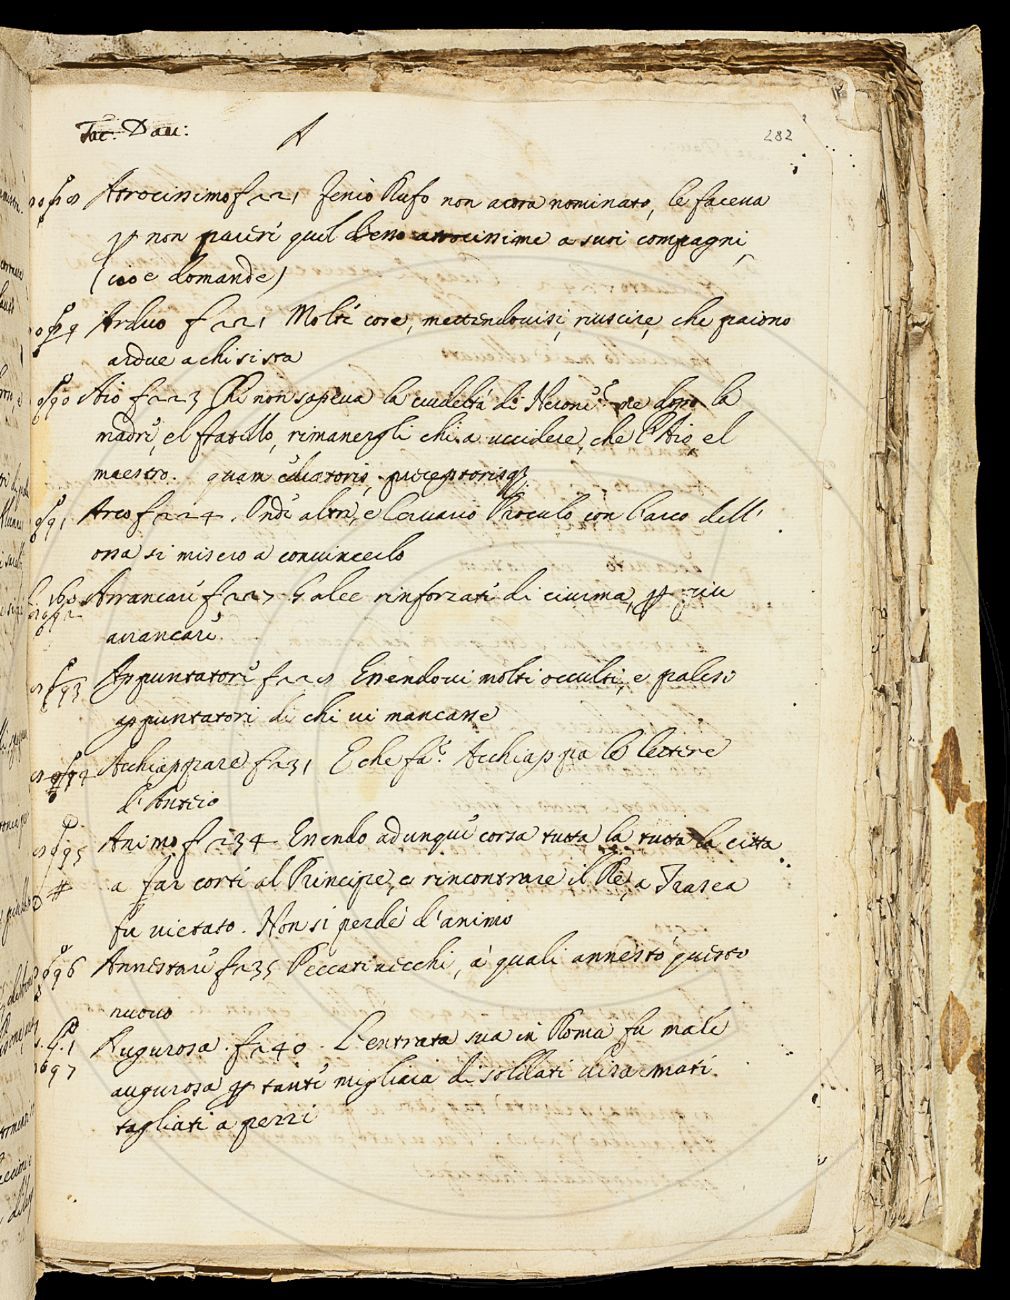 Tac: Dau:
A
282
Atrocissimo f 221 Fenio Rufo non ancora nominato, le faceva
p non parer quel desso atrocissime a suoi compagni,
(cioè domande)
Arduo f 221 Molte cose, mettendovisi, riuscire, che paiono
ardue a chi si sta
Aio f 223 Chi non sapeva la crudeltà di Nerone? ne dopo la
madre, e'l fratello, rimanergli chi a uccidere, che l'Aio e'l
maestro. quam educatoris, praeceptorisq
Arco f 224. Onde altri, e Cervario Proculo con l'arco dell'
ossa si misero a convincerlo
Arrancare f 227 Galee rinforzate di ciurma, p più
arrancare
93 Appuntatore f 228 Essendovi molti occulti, e palesi
appuntatori di chi vi mancasse
Acchiappare f 231 E che fa? Acchiappa le lettere
d'Anteio
95 Animo f 234 Essendo adunque corsa tutta la tutta la città
a far corte al Principe, e rincontrare il Re, a Trasea
fu vietato. Non si perdé d'animo
96 Annestare f 235 Peccati vecchi, a quali annestò questo
nuovo
97 Augurosa. f 240. L'entrata sua in Roma fu male
augurosa p tante migliaia di soldati disarmati
tagliati a pezzi